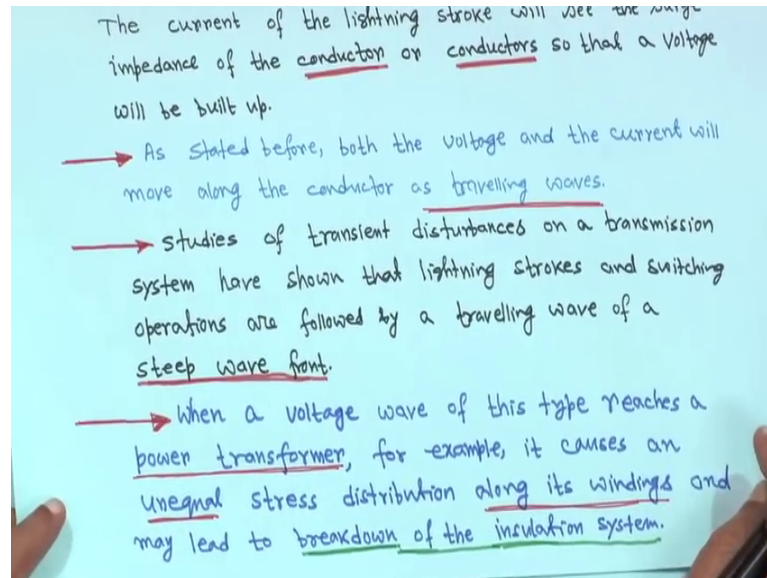 The current of the lightning stroke will see the surge
impedance of the conductor or conductors so that a voltage
will be built up.
As stated before, both the voltage and the current will
move along the conductor as travelling waves.
Studies of transient disturbances on a transmission
system have shown that lightning strokes and switching
operations are followed by a travelling wave of a
steep wave front.
When a voltage wave of this type reaches a
power transformer, for example, it causes an
unequal stress distribution along its windings and
may lead to breakdown of the insulation system.